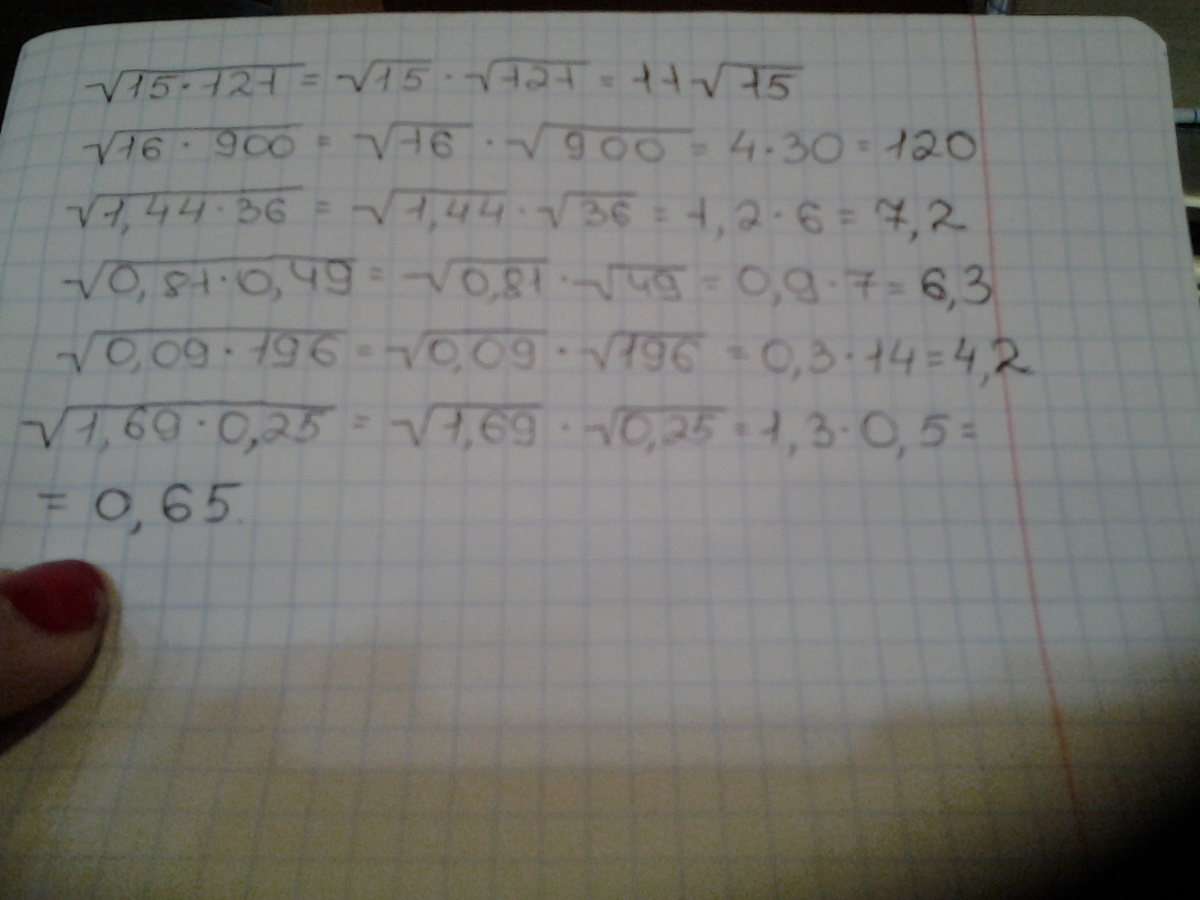 √15·121 = √15 · √121 = 11√15
√16 · 900 = √16 · √900 = 4·30 = 120
√1,44·36 = √1,44 · √36 = 1,2·6 = 7,2
√0,81·0,49 = √0,81 · √49 = 0,9·7 = 6,3
√0,09·196 = √0,09 · √196 = 0,3·14 = 4,2
√1,69·0,25 = √1,69 · √0,25 = 1,3·0,5 =
= 0,65.